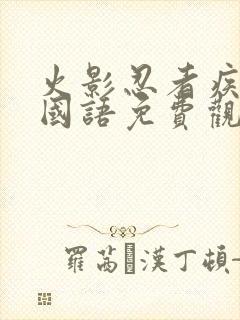 火影忍者疾
國語免費觀
羅茜漢丁頓